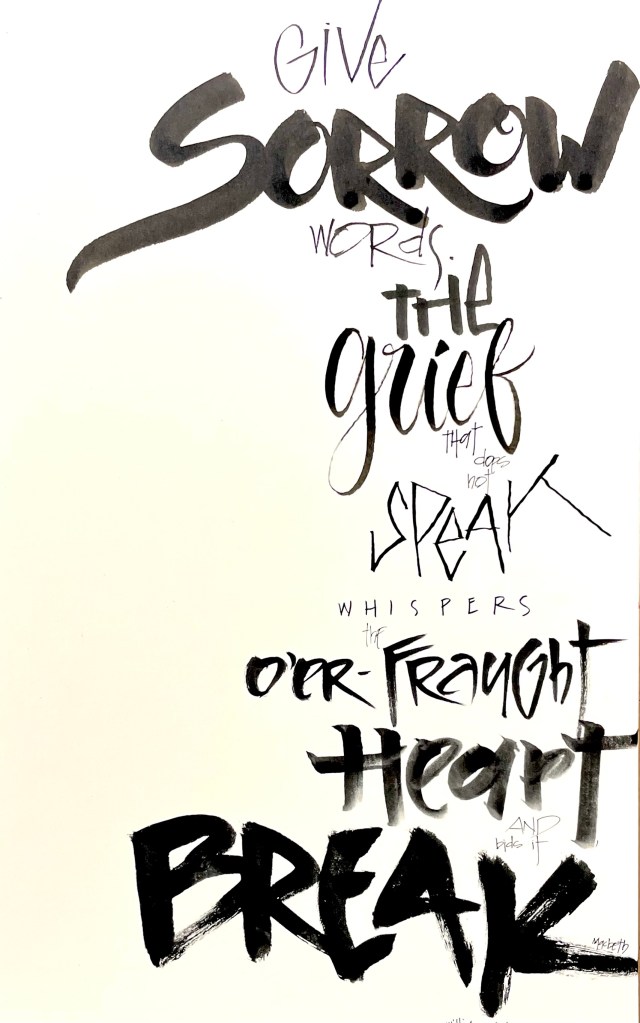 Give
SORROW
WORds.
THE
grief
that
does
not
SPEAK
WHISPERS
the
O'ER-FRaUGht
Heart
AND
bids it
BREAK
Macbeth